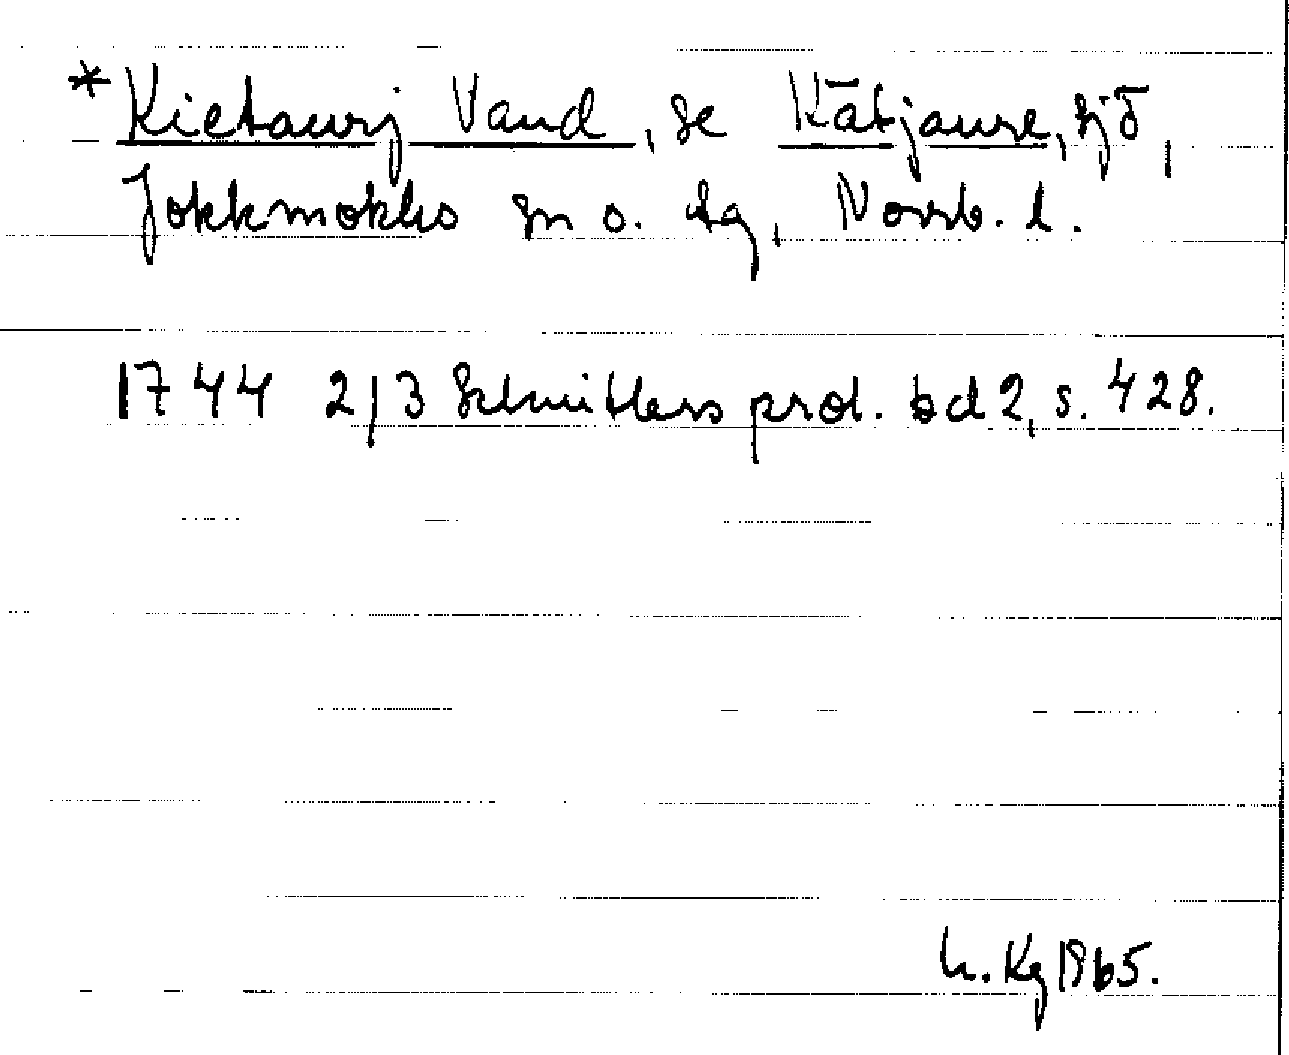 * Kietaurj Vand, se Kätjaure, sjö,
Jokkmokks sn o. tg, Norrb. l.
1744 2/3 Schnitlers prot. bd 2, s. 428.
h. Kg 1965.